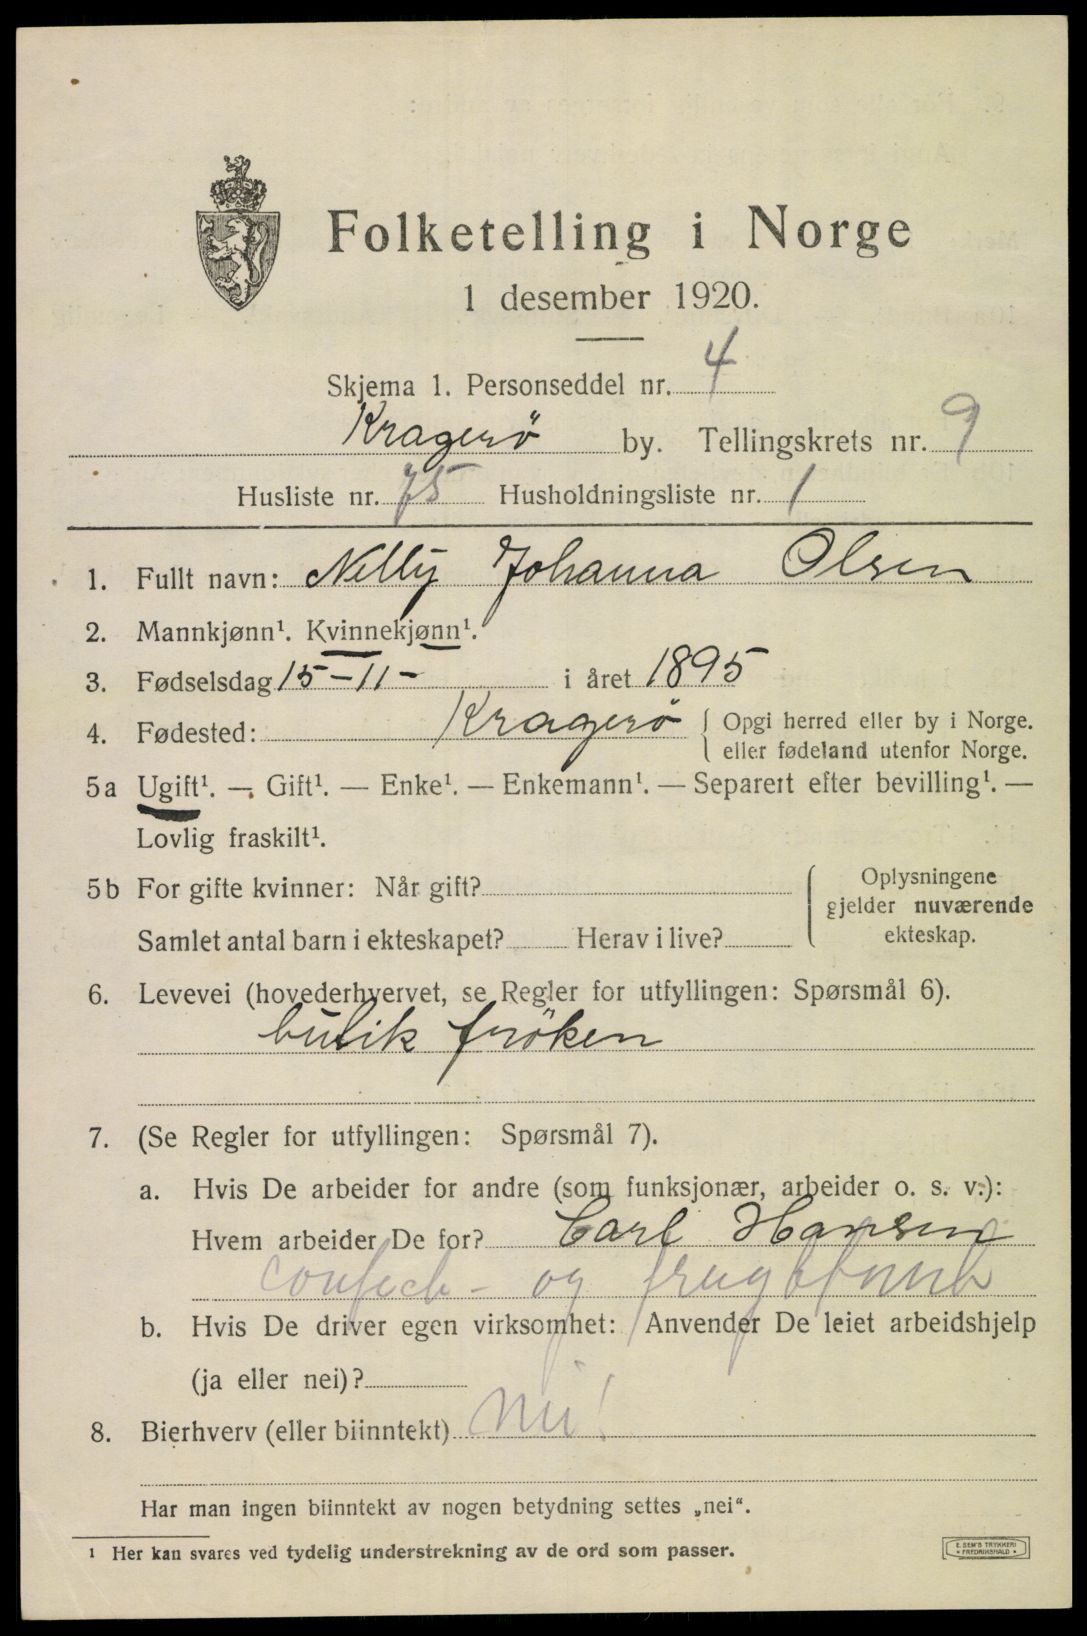 Folketelling i Norge
1 desember 1920.
Skjema 1. Personseddel nr. 4
Kragerö by. Tellingskrets nr. 9
Husliste nr. 75 Husholdningsliste nr. 1
1. Fullt navn: Nelly Johanna Olsen
2. Mannkjønn¹. Kvinnekjønn¹.
3. Fødselsdag 15-11- i året 1895
4. Fødested: Kragerö { Opgi herred eller by i Norge.
eller fødeland utenfor Norge.
5a Ugift¹. — Gift¹. — Enke¹. — Enkemann¹. — Separert efter bevilling¹. —
Lovlig fraskilt¹.
5b For gifte kvinner: Når gift?
Samlet antal barn i ekteskapet? Herav i live?
Oplysningene
gjelder nuværende
ekteskap.
6. Levevei (hovederhvervet, se Regler for utfyllingen: Spørsmål 6).
butik fröken
7. (Se Regler for utfyllingen: Spørsmål 7).
a. Hvis De arbeider for andre (som funksjonær, arbeider o. s. v.):
Hvem arbeider De for? Carl Hansen
confect- og frugt
b. Hvis De driver egen virksomhet: Anvender De leiet arbeidshjelp
(ja eller nei)?
8. Bierhverv (eller biinntekt) Nei!
Har man ingen biinntekt av nogen betydning settes „nei".
¹ Her kan svares ved tydelig understrekning av de ord som passer.
E. SEM'S TRYKKERI
• FREDRIKSHALD •